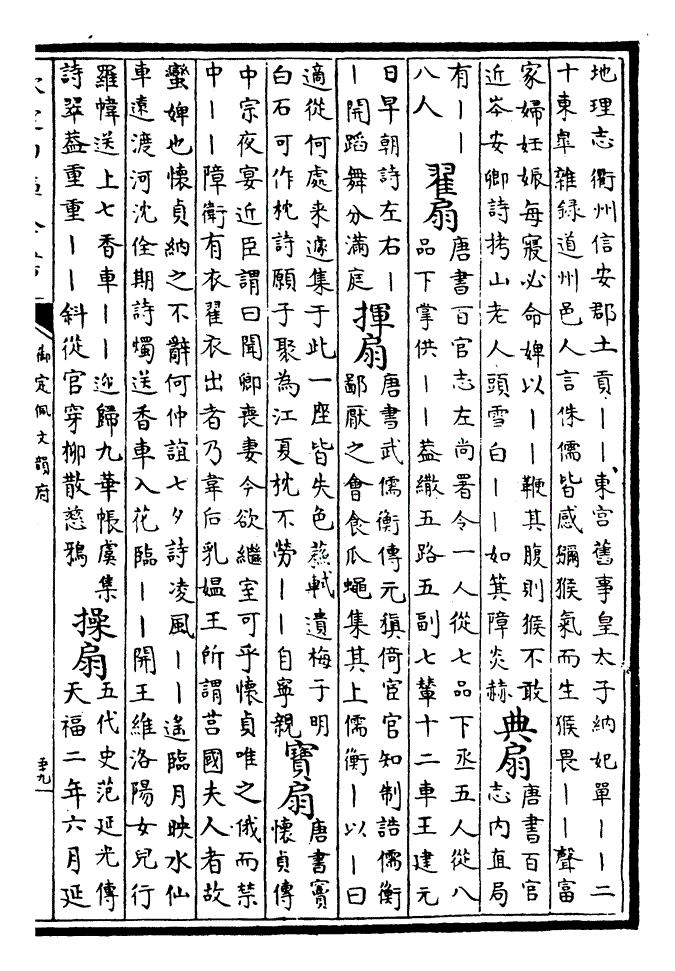 地理志衢州信安郡土貢丨丨東宮舊事皇太子納妃單丨丨二
十東臯雜録道州邑人言侏儒皆感獼猴氣而生猴畏丨丨聲富
家婦妊娠每寢必命婢以丨丨鞭其腹則猴不敢
近岑安卿詩拷山老人頭雪白丨丨如箕障炎赫
典扇
唐書百官
志内直局
有丨丨
八人
翟扇
唐書百官志左尚署令一人從七品下丞五人從八
品下掌供丨丨葢繖五路五副七輦十二車王建元
日早朝詩左右丨
丨開蹈舞分滿庭
揮扇
唐書武儒衡傳元稹倚宦官知制誥儒衡
鄙厭之會食瓜蠅集其上儒衡丨以丨曰
適從何處来遽集于此一座皆失色蘇軾遺梅子明
白石可作枕詩願子聚為江夏枕不勞丨丨自寧親
寶扇
唐書竇
懷貞傳
中宗夜宴近臣謂曰聞卿喪妻今欲繼室可乎懷貞唯之俄而禁
中丨丨障衛有衣翟衣出者乃韋后乳媼王所謂莒國夫人者故
蠻婢也懷貞納之不辭何仲誼七夕詩凌風丨丨遙臨月映水仙
車遠渡河沈佺期詩燭送香車入花臨丨丨開王維洛陽女兒行
羅幃送上七香車丨丨迎歸九華帳虞集
詩翠葢重重丨丨斜從官穿柳散慈鴉
操扇
五代史范延光傳
天福二年六月延
御定佩文韻府